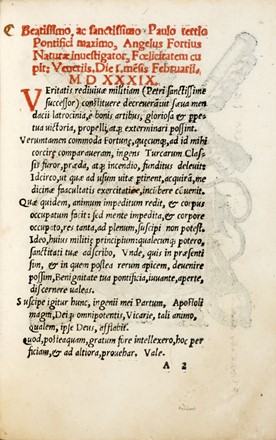 Beatissimo, ac sanctissimo Paulo tertio
Pontifici maximo, Angelus Fortius
Naturæ inuestigator, Fœlicitatem cu
pit: Venetijs, Die s. mēsis Februarij,
M D XXXIX.
VEritatis rediuiuæ militiam (Petri sanctissime
successor) constituere decreuerā: ut sæua men
dacij latrocinia, e bonis artibus, gloriosa & ppe
tua uictoria, propelli, atq; exterminari possint.
Veruntamen commoda Fortunæ, quæcunq;, ad id mihi
corcire compararueram, ingens Turcarum Clas-
sis furor, præda, atq; incendio, funditus deleuit:
Idcirco, ut quæ ad usum uitæ ptinent, acquirā, me
dicinæ facultatis exercitatiōe, incūbere cōuenit.
Quæ quidem, animum impeditum redit, & corpus
occupatum facit: sed mente impedita, & corpore
occupato, res tanta, ad plenum, suscipi non potest.
Ideo, huius militiæ principium: qualecunq; potero,
sanctitati tuæ adscribo, Vnde, quis in præsenti
sim, & in quem postea rerum apicem, deuenire
possim, Benignitate tua pontificia, iuuante, aperte,
discernere ualeas.
Suscipe igitur hunc, ingenij mei Partum, Apostoli
magni, Deiq; omnipotentis, Vicarie, tali animo,
qualem, ipse Deus, efflabit.
quod, posteaquam, gratum fore intellexero, hoc per
ficiam, & ad altiora, prouehar. Vale.
A 2